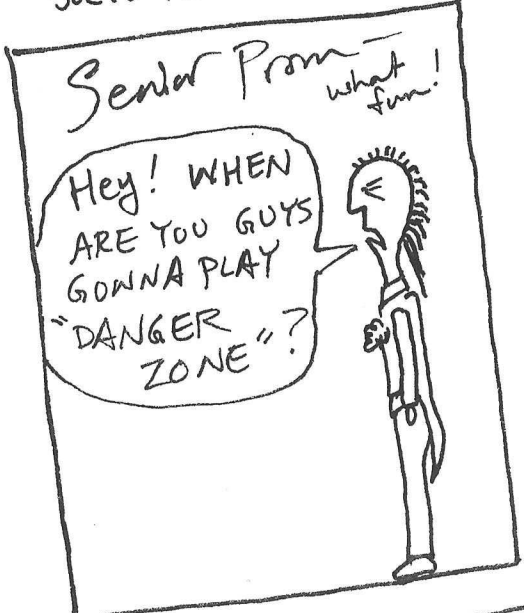 Senior Prom —
what
fun!
Hey! WHEN
ARE YOU GUYS
GONNA PLAY
"DANGER
ZONE"?